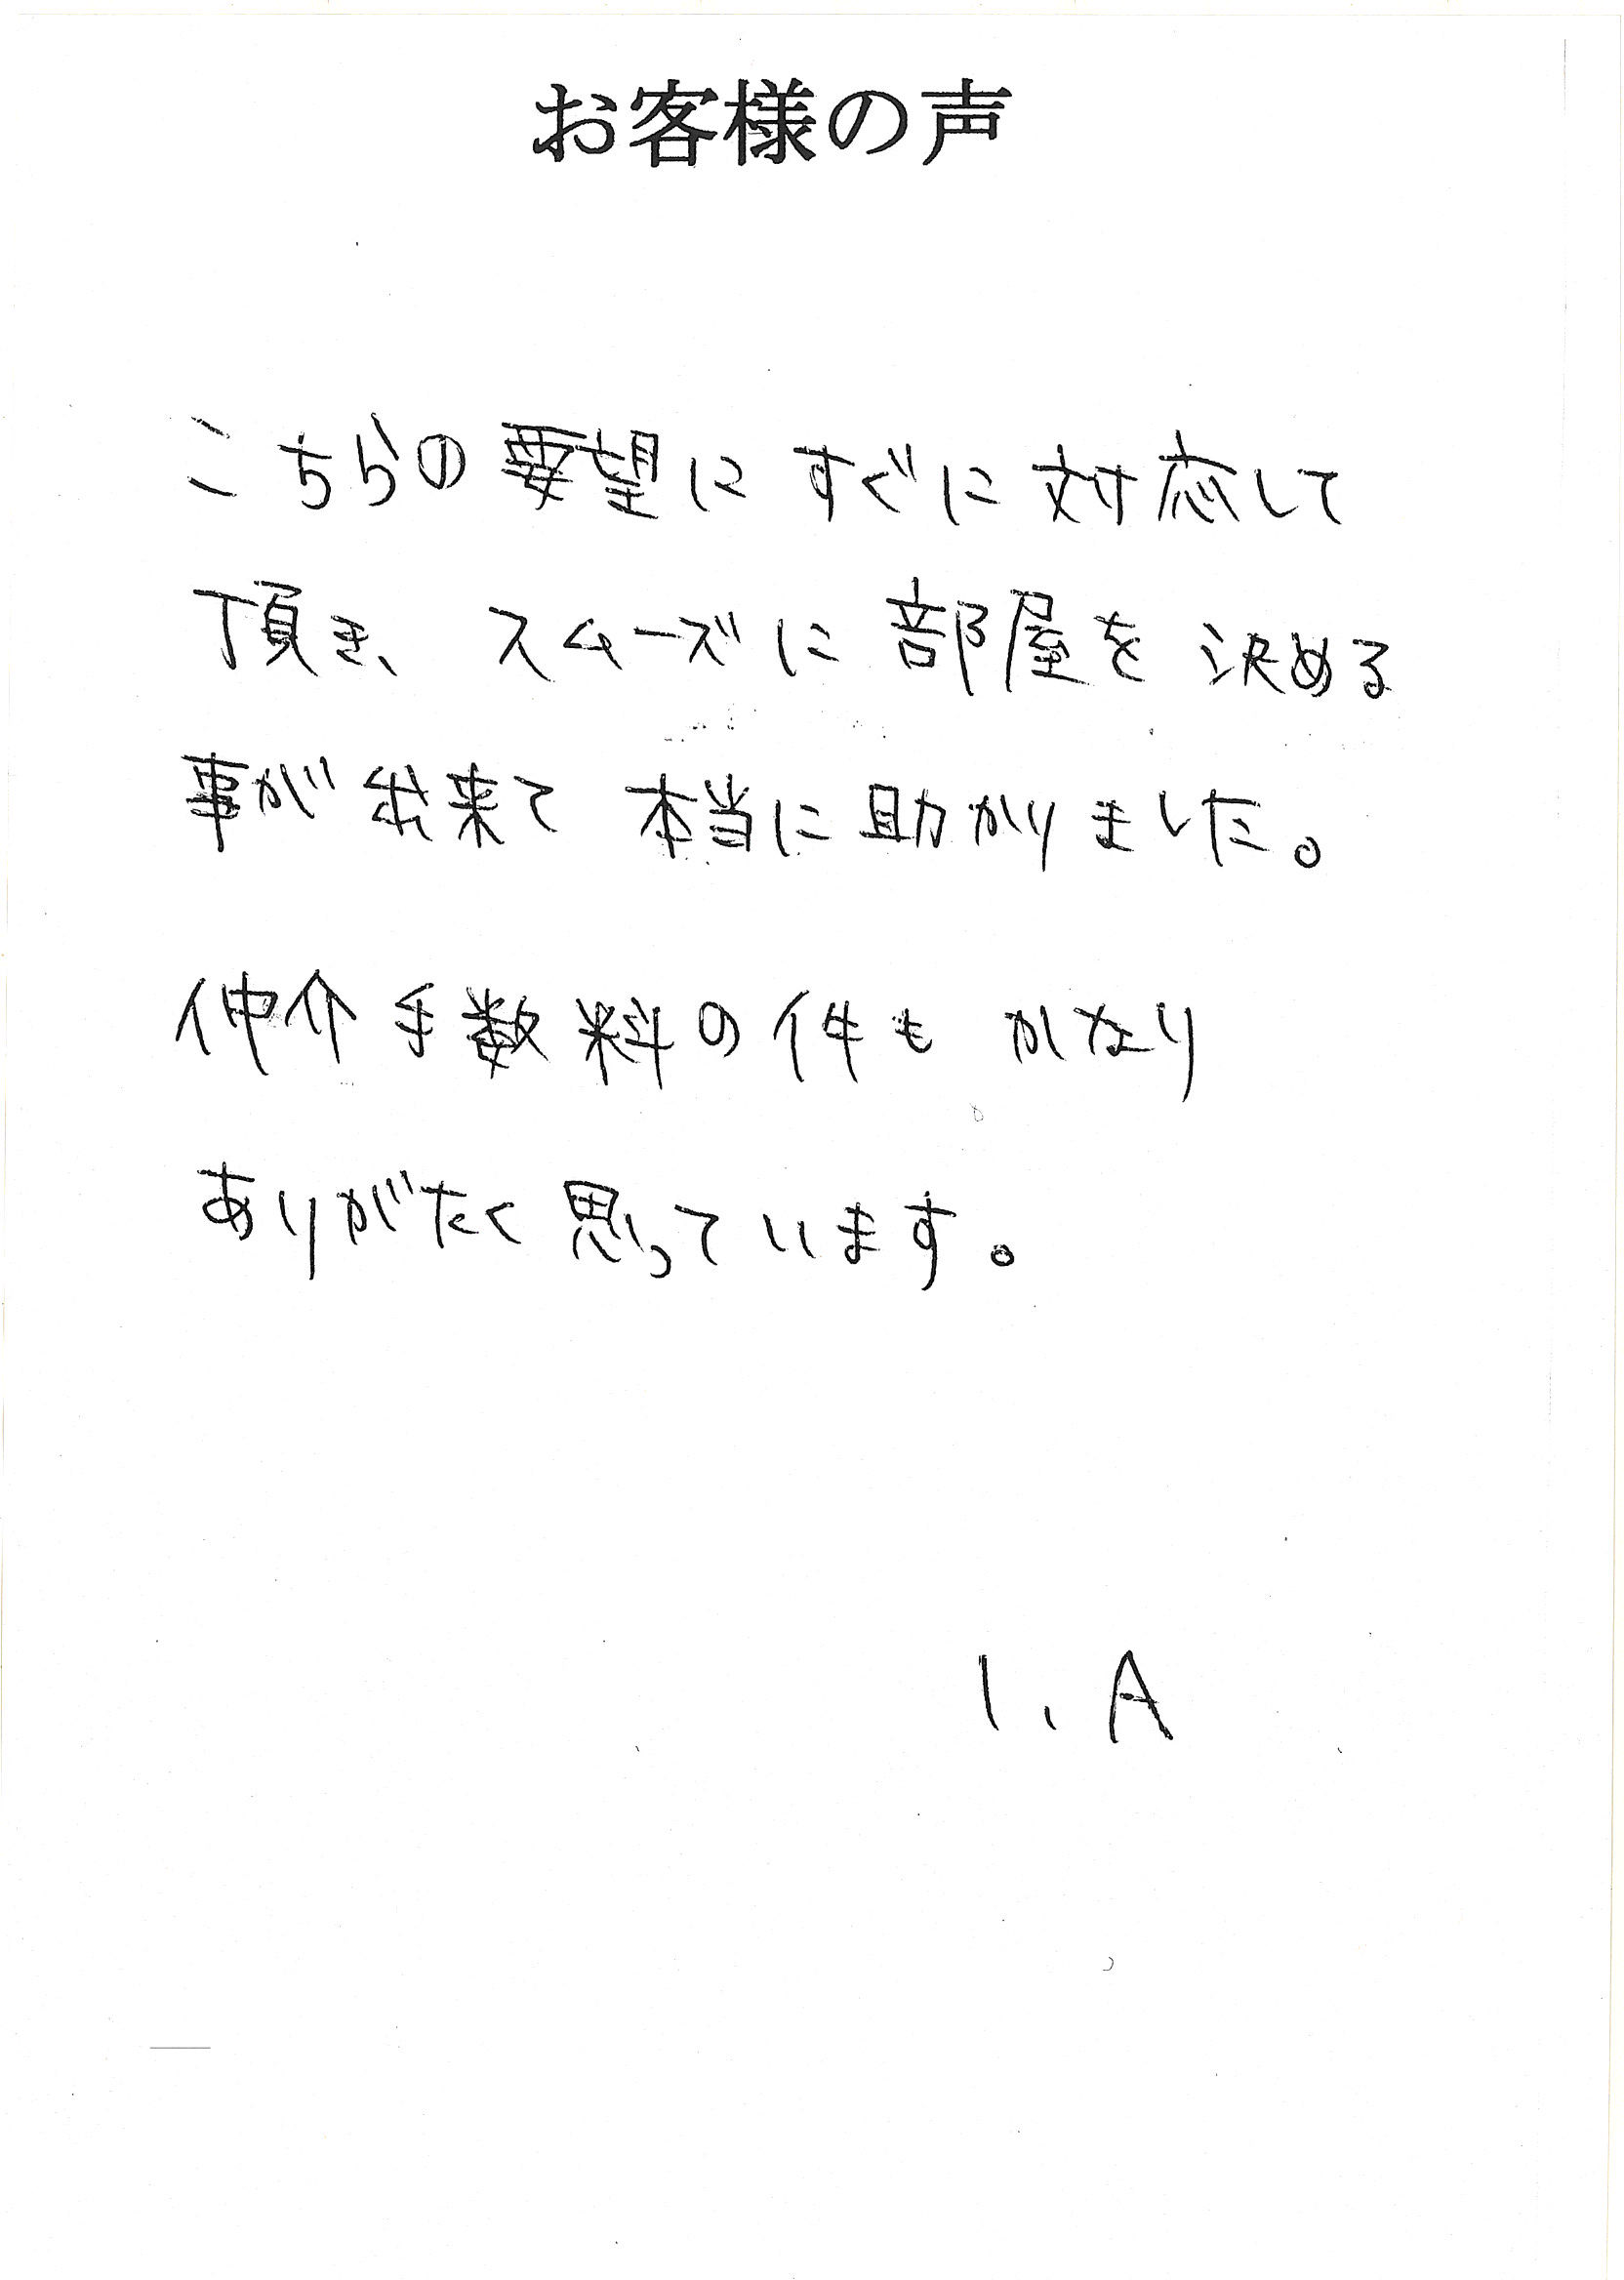 お客様の声
こちらの要望にすぐに対応して
頂き、スムーズに部屋を決める
事が出来て本当に助かりました。
仲介手数料の件もかなり
ありがたく思っています。
I.A